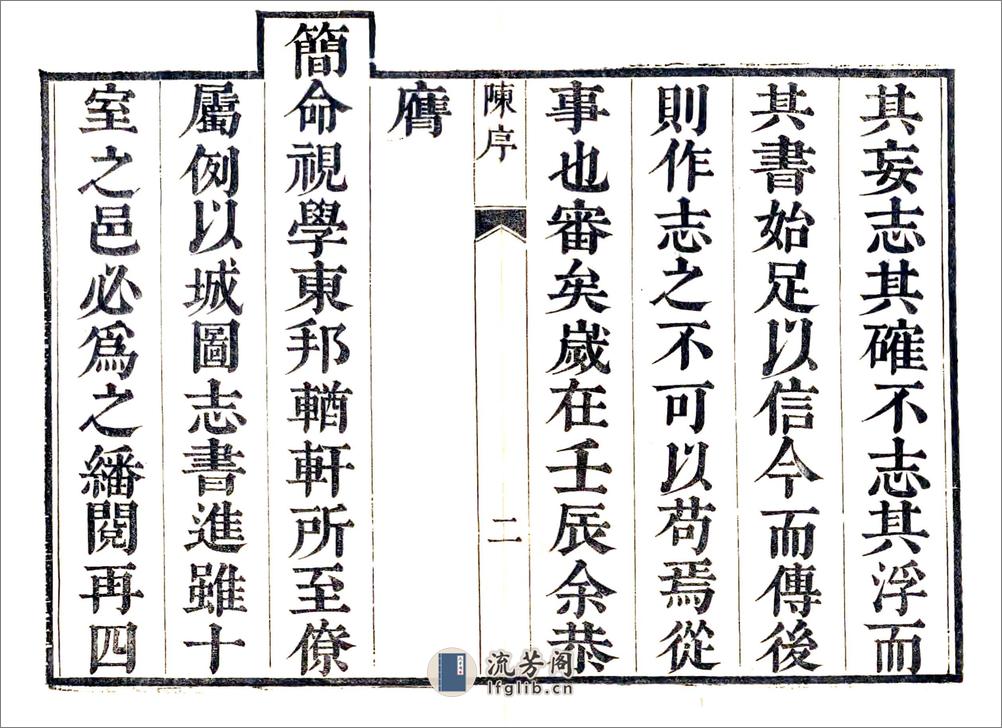 其妄志其確不志其浮而
其書始足以信今而傳後
則作志之不可以苟焉從
事也審矣歲在壬辰余恭
陳序
二
膺
簡命視學東邦輶軒所至僚
屬例以城圖志書進雖十
室之邑必爲之繙閱再四
流芳阁
lfglib.cn